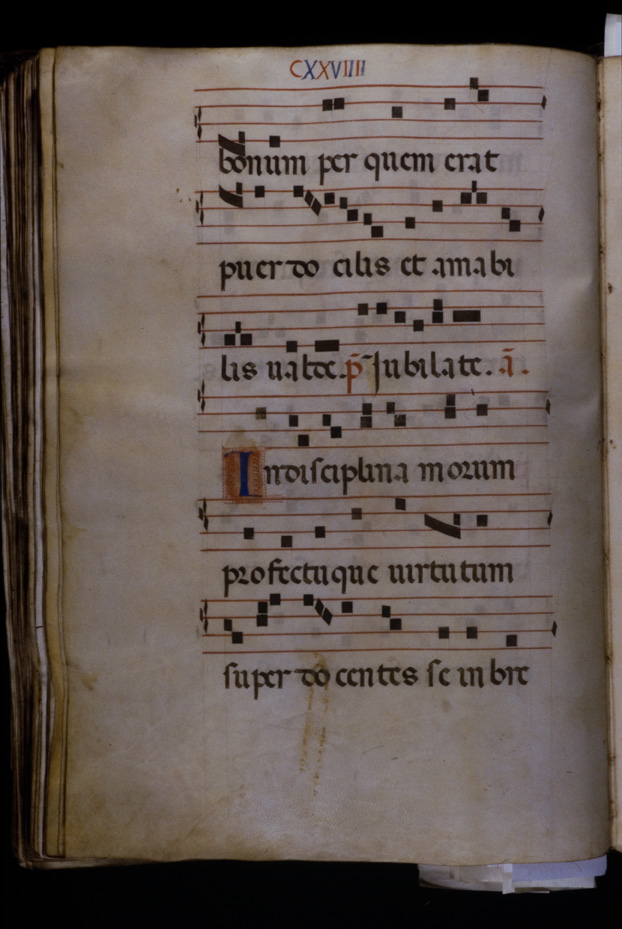 CXXVIIII
bonum per quem erat
puer do cilis et amabi
lis ualde. p̄s Jubilate. a̅.
Indisciplina morum
profectuque uirtutum
super do centes se in bre